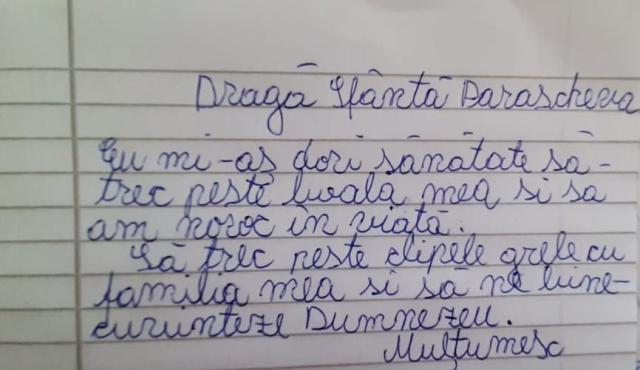 Dragă Sfântă Parascheva
Eu mi-aș dori sănătate să
trec peste boala mea si sa
am noroc în viață.
Să trec peste clipele grele cu
familia mea si să ne bine-
cuvinteze Dumnezeu.
Mulțumesc